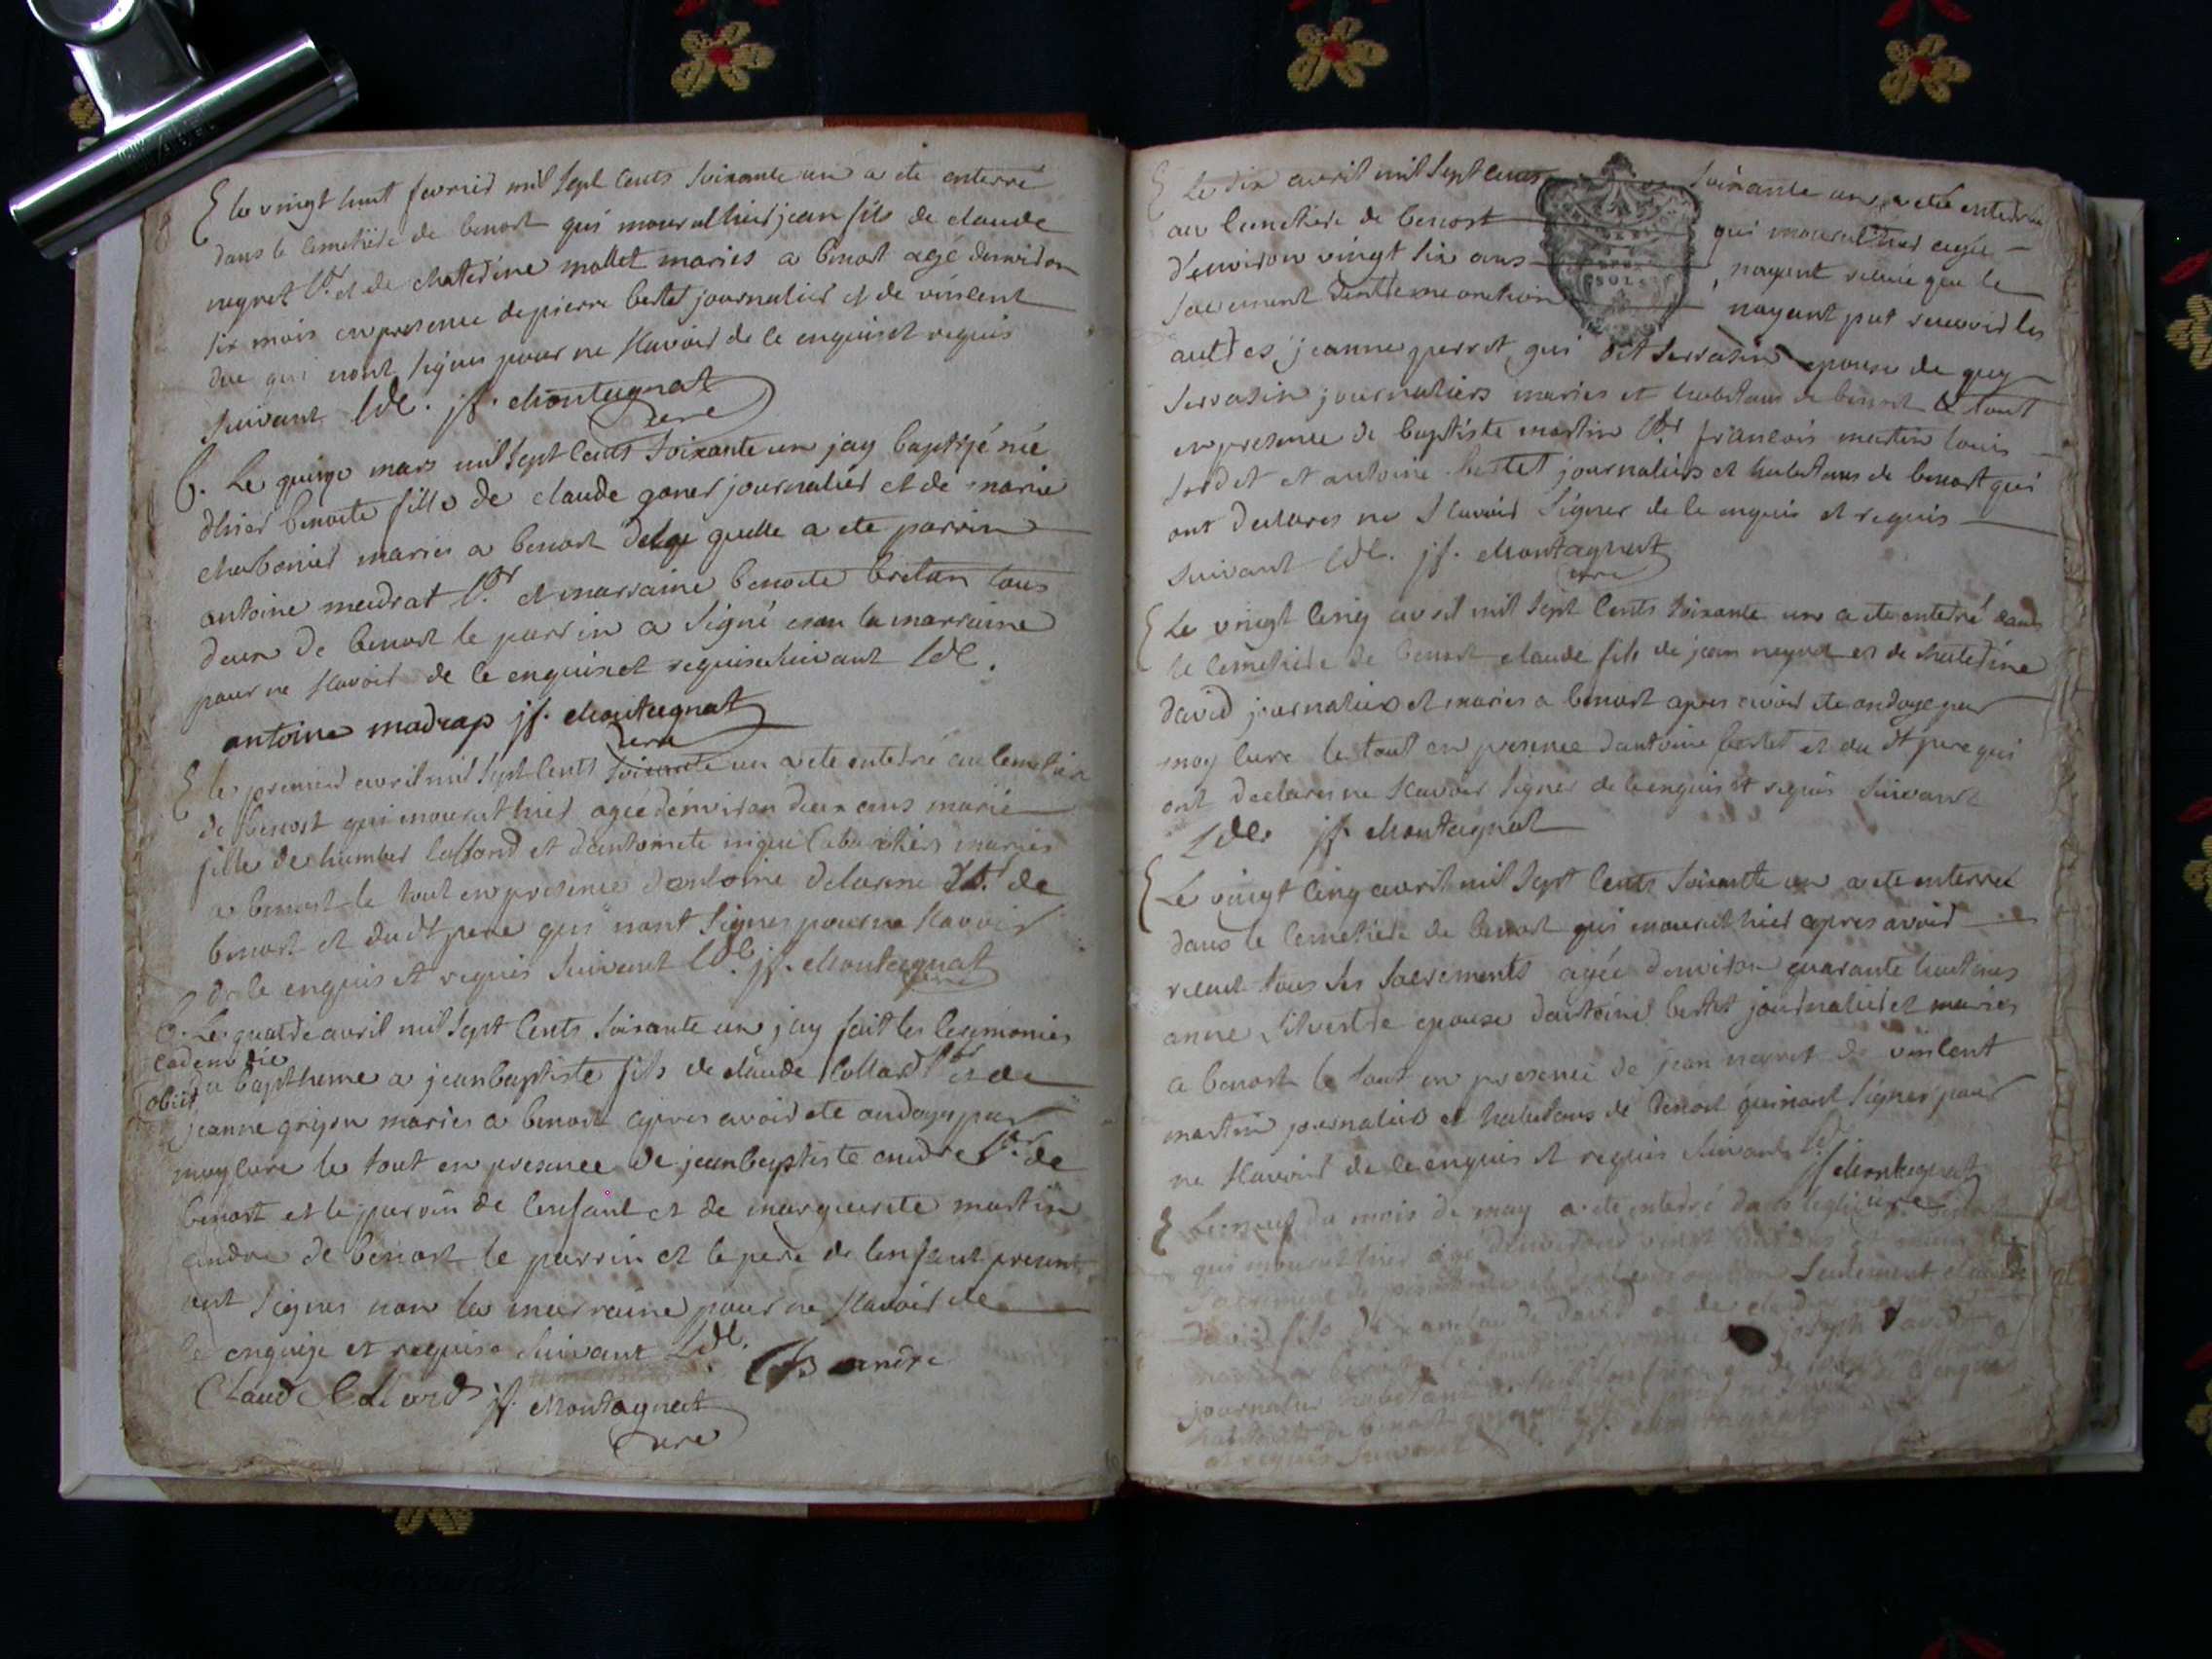 E le vingt huit fevrier mil sept cents soixante un a ete enterré
dans le cemetiere de benost qui mourut hier jean fils de claude
neyret lbr et de chaterine mollet maries a benost agé denviron
six mois en presence de pierre bertet journalier et de vincent
duc qui nont signes pour ne scavoir de ce enquis et requis
suivant lde. jf. Montagnat
cure
b. Le quinze mars mil sept cents soixante un jay baptizé née
dhier benoite fille de claude goner journalier et de marie
charbonier maries a benost de laquelle a ete parrin
antoine meudrat lbr et marraine benoite bretan tous
deux de benost le parrin a signé non la marraine
pour ne scavoir de ce enquise et requise suivant lde.
antoine madrap jf. Montagnat
cure
E le premier avril mil sept cents soixante un a ete enterré au cemetiere
de benost qui mourut hier agée denviron deux ans marie
fille de humber laffond et dantoinete cabaretiers maries
a benost le tout en presence dantoine delorme de
benost et dudt pere qui nont signes pour ne scavoir
de ce enquis et requis suivant lde. jf. Montagnat
cure
b. Le quatre avril mil sept cents soixante un jay fait les ceremonies
eadem die
obiit
du baptheme a jeanbaptiste fils de claude Collard lbr et de
jeanne grison maries a benost apres avoir ete ondoye par
moy cure le tout en presence de jeanbaptiste andre lbr de
benost et le parrin de lenfant et de marguerite martin
andre de benost le parrin et le pere de lenfant present
ont signes non la marraine pour ne scavoir de
ce enquise et requise suivant lde.
Claude Collard jf. Montagnat JB andre
cure
E Le dix avril mil sept cens soixante un a eté enterrée
au cemetiere de benost qui mourut hier agée
d'environ vingt six ans nayant receu que le
sacrement dextreme onction nayant put recevoir les
autres, jeanne perret qui dit serrasin epouse de guy
serrasin journaliers maries et habitans de benost le tout
en presence de baptiste martin lbr francois martin louis
sordet et antoine bertet journaliers et habitans de benost qui
ont declares ne scavoir signer de ce enquis et requis
suivant lde. jf. Montagnat
cure
E Le vingt cinq avril mil sept cents soixante un a ete enterré dans
le cemetiere de benost claude fils de jean neyret et de chaterine
david journaliers et maries a benost apres avoir ete ondoye par
moy cure le tout en presence dantoine bertet et du dt pere qui
ont declares ne scavoir signer de ce enquis et requis suivant
lde. jf. Montagnat
E Le vingt cinq avril mil sept cents soixante un a ete enterrée
dans le cemetiere de benost qui mourut hier apres avoir
receut tous ses sacrements agée denviron quarante huit ans
anne silvestre epouse dantoine bertet journalier et maries
a benost le tout en presence de jean neyret de vincent
martin journaliers et habitans de benost qui nont signes pour
ne scavoir de ce enquis et requis suivant lde.
jf Montagnat
cure
E Le neuf du mois de may a ete enterré dans leglise de benost
qui mourut hier agé denviron vingt
sacrement de penitence et seulement claude
david fils de claude david et de
maries a benost le tout en presence joseph david
journalier habitant
habitants de benost
et requis suivant jf. Montagnat